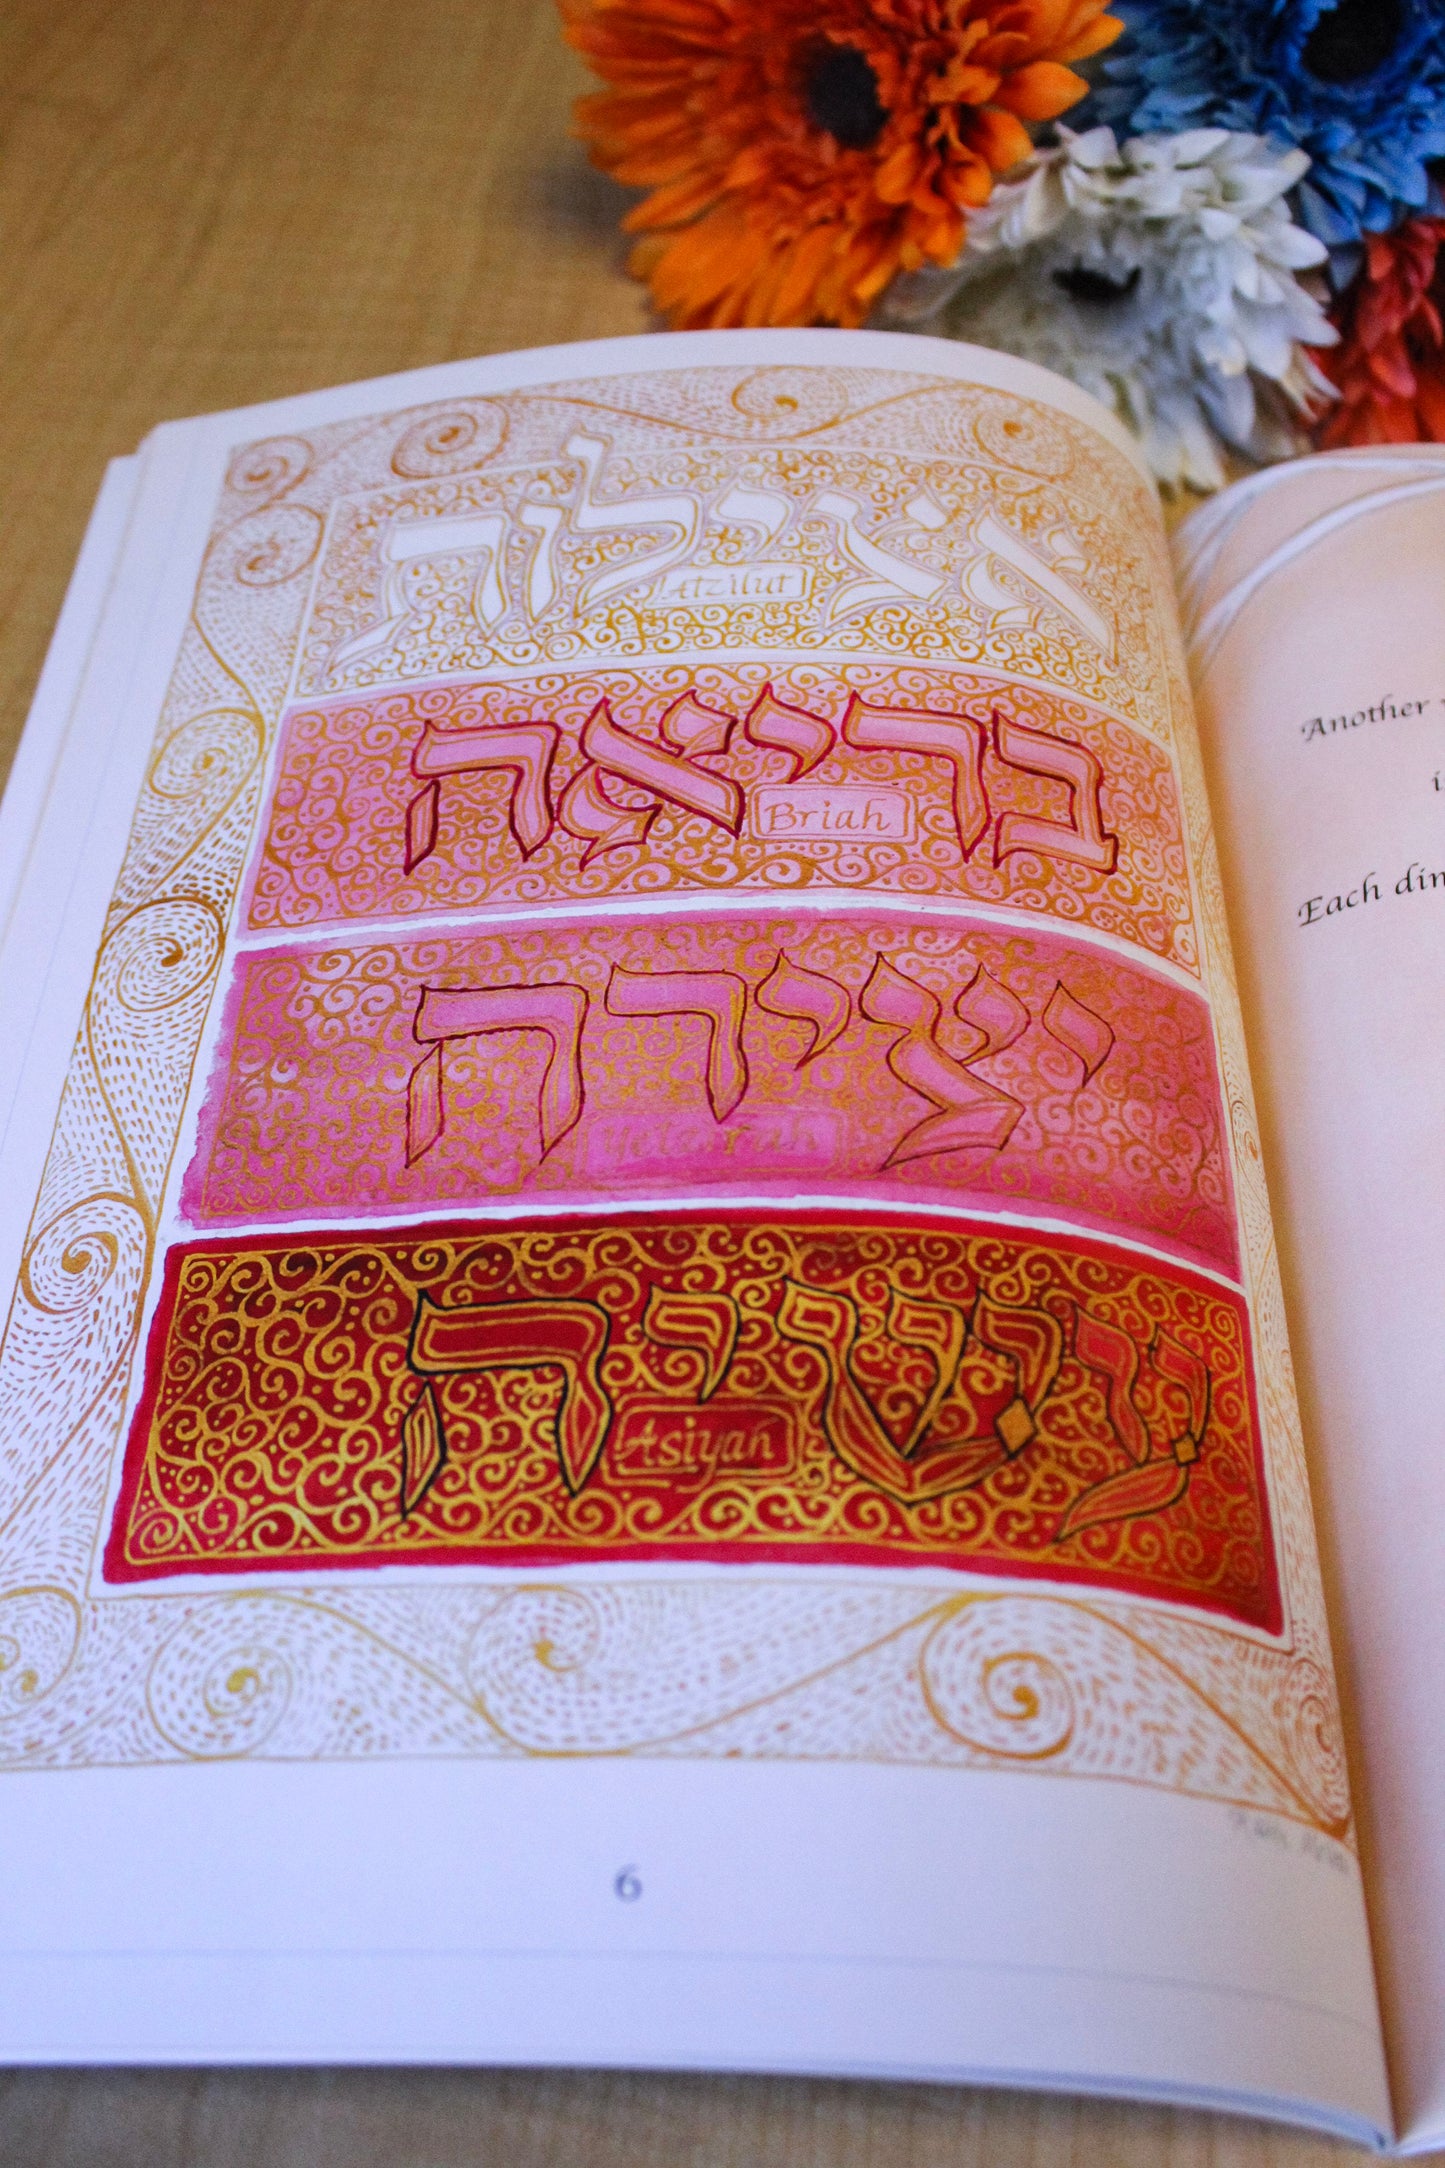 אצילות
Atzilut
בריאה
Briah
יצירה
עשיה
Asiyah
6
Another
Each